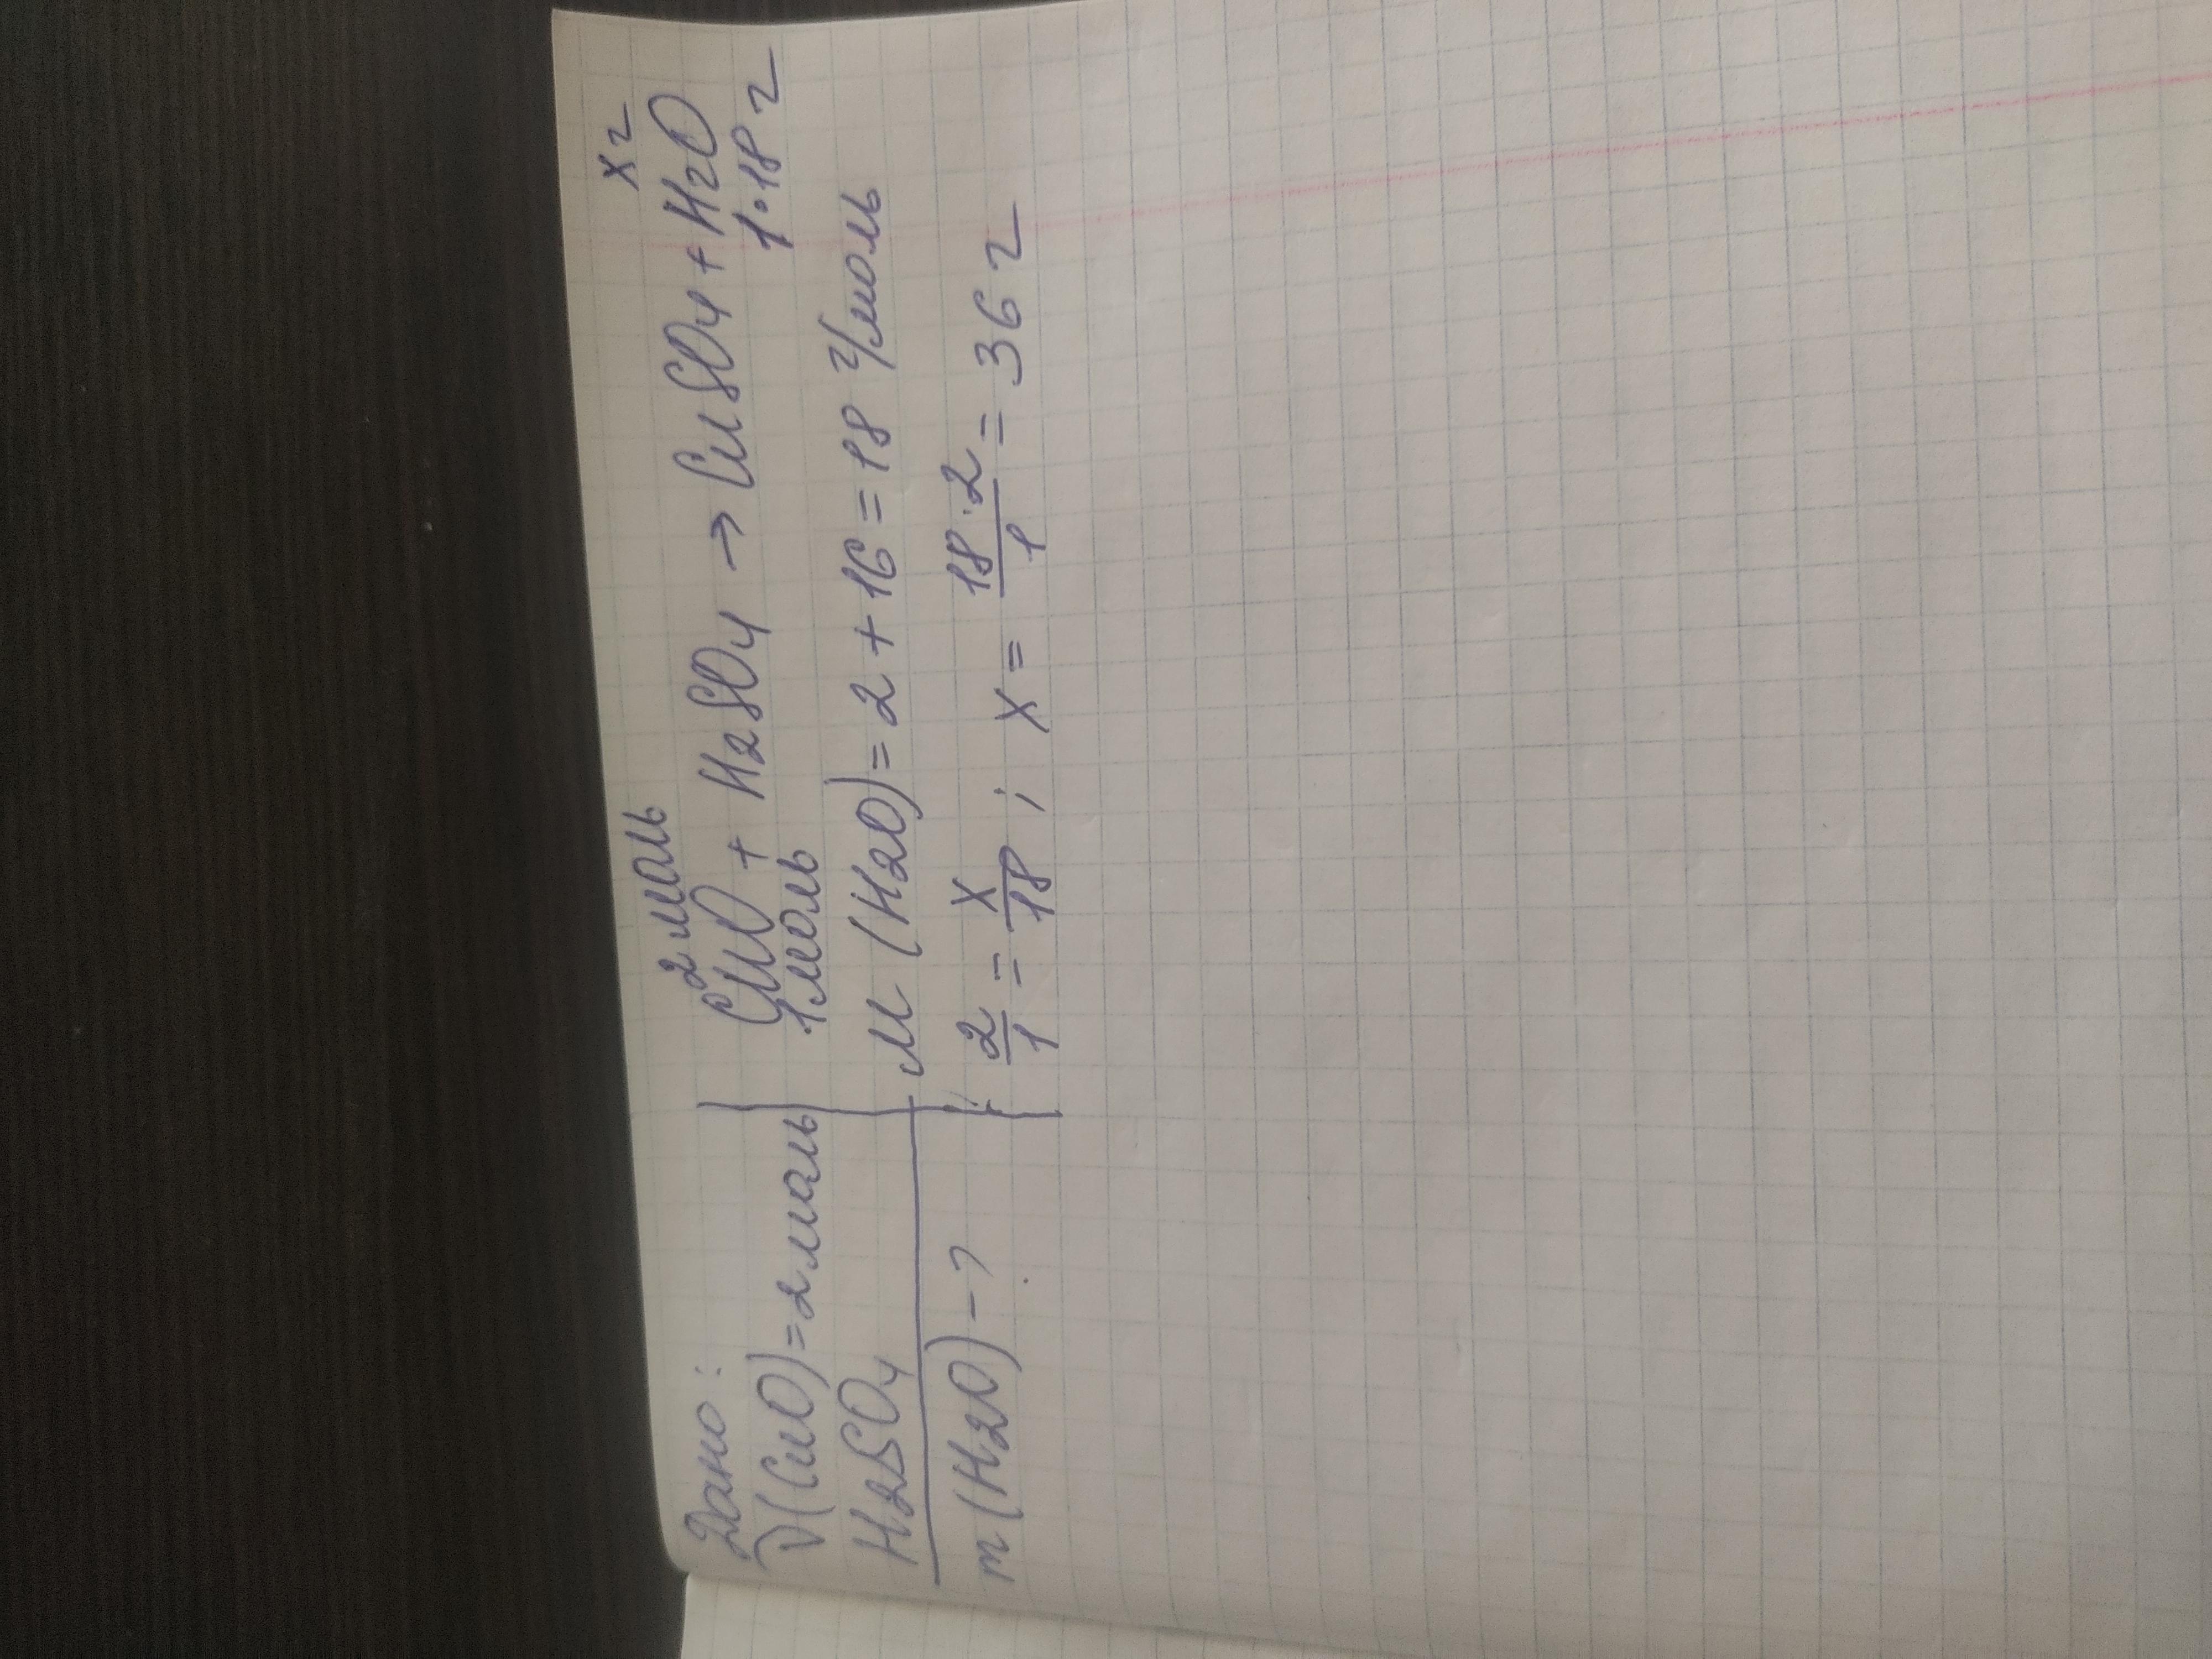 Дано:
ν(CuO)=2моль
H2SO4
m(H2O)-?
2моль x г
CuO + H2SO4 → CuSO4 + H2O
1моль 1•18 г
M(H2O)=2+16=18 г/моль
2/1 = x/18 ; x = 18·2/1 = 36 г